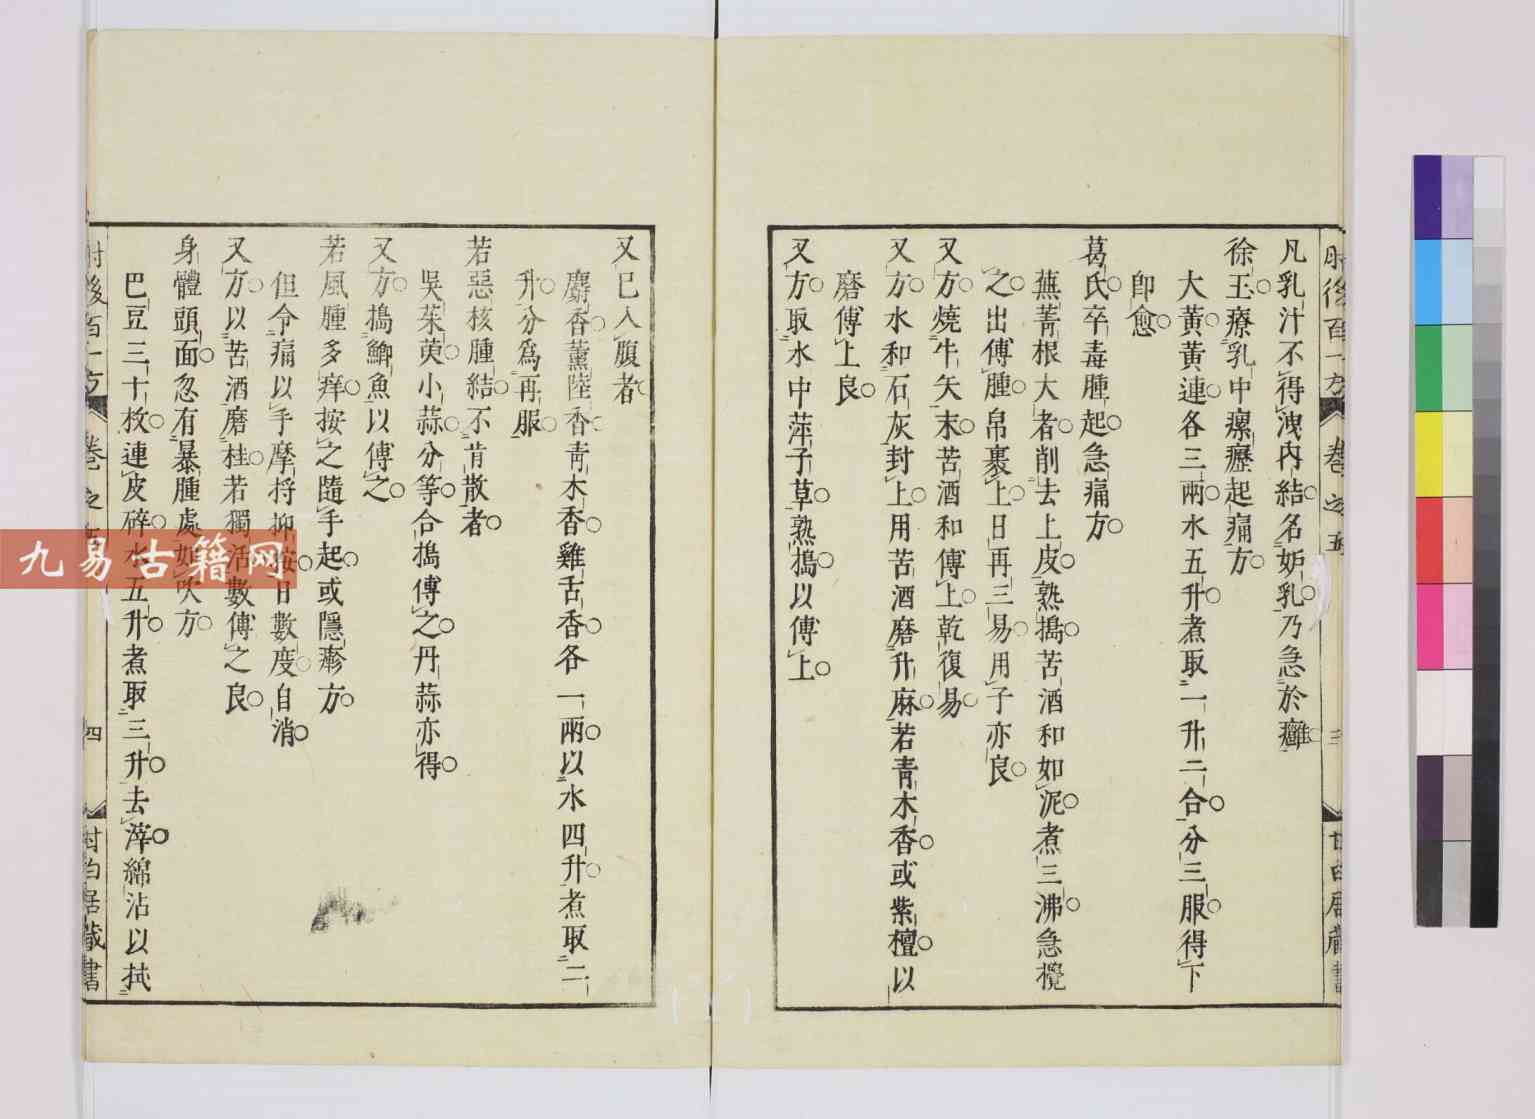 肘後百一方 卷之五 三
凡乳汁不得洩內結名妬乳乃急於癰
徐玉療乳中瘰癧起痛方
大黃黃連各三兩水五升煮取一升二合分三服得下
卽愈
葛氏卒毒腫起急痛方
蕪菁根大者削去上皮熟搗苦酒和如泥煮三沸急攪
之出傅腫帛裹上日再三易用子亦良
又方燒牛矢末苦酒和傅上乾復易
又方水和石灰封上用苦酒磨升麻若青木香或紫檀以
磨傅上良
又方取水中萍子草熟搗以傅上
又已入腹者
麝香薰陸香青木香雞舌香各一兩以水四升煮取二
升分爲再服
若惡核腫結不肯散者
吳茱萸小蒜分等合搗傅之丹蒜亦得
又方搗鯽魚以傅之
若風腫多痒按之隨手起或隱疹方
但令痛以手摩捋抑按日數度自消
又方以苦酒磨桂若獨活數傅之良
身體頭面忽有暴腫處如吹方
巴豆三十枚連皮碎水五升煮取三升去滓綿沾以拭
肘後百一方 卷之 四 居藏書
九易古籍网